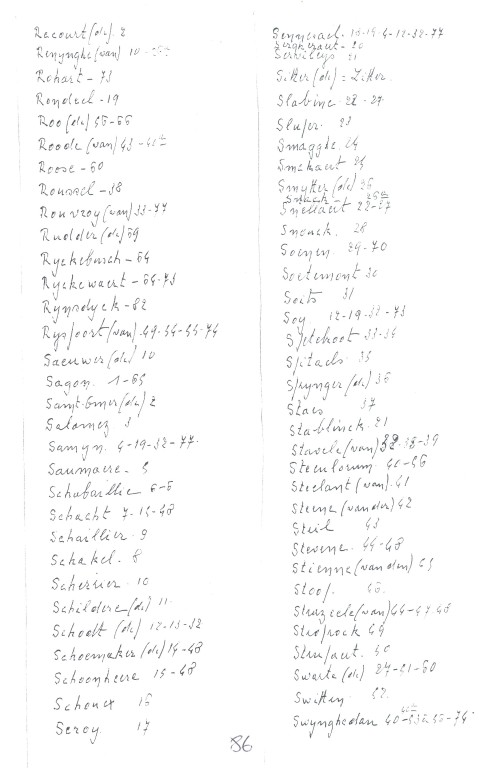 Recourt (de). 2
Renynghe (van) 10
Rohart - 73
Rondeel - 19
Roo (de) 45-56
Roode (van) 43
Roose - 60
Roussel - 38
Rouvroy (van) 33-77
Rudder (de) 59
Ryckebusch - 54
Ryckewaert - 54-73
Rynsdyck - 82
Rysfoort (van) 49-54-55-74
Saeuwer (de) 10
Sagon. 1-65
Saint-Omer (de) 2
Salomez 3
Samyn. 4-19-32-77.
Saumaere. 5
Schabaillie 6-5
Schacht 7-14-48
Schaillier. 9
Schakel. 8
Scherrier. 10
Schildere (de) 11
Schodt (de) 12-13-32
Schoemaker (de) 14-48
Schoonheere 15-48
Schoux 16
Seroy. 17
Sennesael. 18-19-4-12-32-77
Sergheraut - 20
Servileys 21
Sitter (de) = Zitter.
Slabinc. 22-27.
Sluper. 23
Smagghe. 24
Smekaert 25
Smytter (de) 26
Snellaert 22-27
Snouck. 28
Soenen. 29-70
Soetemont 30
Soits 31
Soy 12-19-32-73
Spetebroot 33-34
Spitaels 35
Sprynger (de) 36
Staes 37
Stablinck. 21
Stavele (van) 32-38-39
Steculorum 40-56
Steelant (van). 41
Steene (vander) 42
Steil 43
Stevene. 44-48
Stienne (van den) 45
Stoop. 46.
Strazeele (van) 44-47-48
Stroprock 49
Strupaert. 50
Swarte (de) 27-51-60
Switten 52.
Swynghedau 40
86